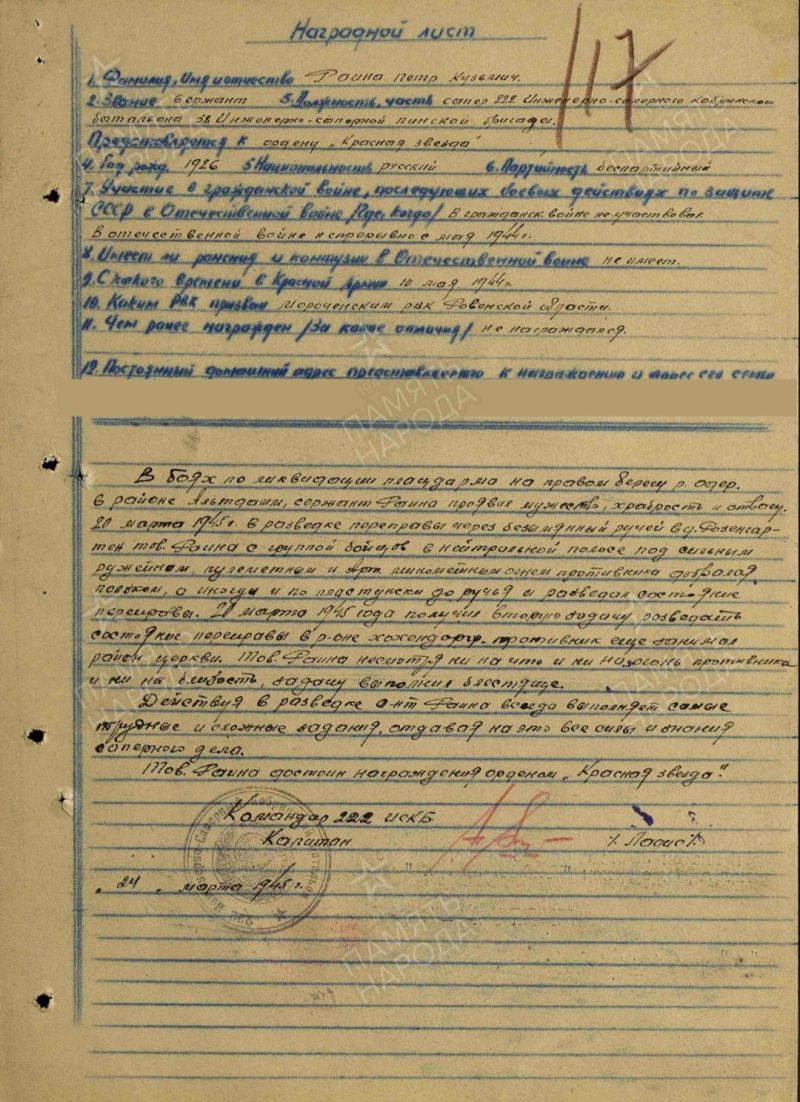 Наградной лист
117
1. Фамилия, имя и отчество Раина Петр Кузьмич.
2. Звание Сержант 3. Должность, часть сапер 222 Инженерно-саперного Кобринского
батальона 38 Инженерно-саперной пинской бригады.
Представляется к ордену „Красная звезда"
4. Год рожд. 1926 5 Национальность русский 6. Партийность беспартийный
7. Участие в гражданской войне, последующих боевых действиях по защите
СССР в Отечественной войне /где, когда/ В гражданск. войне не участвовал
В отечественной войне непрерывно с мая 1944г.
8. Имеет ли ранения и контузии в Отечественной войне не имеет.
9. С какого времени в Красной Армии 10 мая 1944г.
10. Каким РВК призван Мороченским рвк Ровенской области.
11. Чем ранее награжден /За какие отличия/ не награждался.
12. Постоянный домашний адрес представляемого к награждению и адрес его семьи
В боях по ликвидации плацдарма на правом берегу р. одер.
в районе Альтдамм, сержант Раина проявил мужество, храбрость и отвагу.
20 марта 1945г. в разведке переправы через безымянный ручей в д. Розенгар-
тен тов. Раина с группой бойцов в нейтральной полосе под сильным
ружейным, пулеметным и Арт. минометным огнем противника добрался
ползком, а иногда и по пластунски до ручья и разведал состояние
переправы. 20 марта 1945 года получил вторую задачу разведать
состояние переправы в р-оне хокендорф. противник еще занимал
район церкви. Тов. Раина несмотря ни на что и ни на огонь противника
и ни на близость, задачу выполнил блестяще.
Действуя в разведке с-нт Раина всегда выполняет самые
трудные и сложные задания, отдавая на это все силы и знания
саперного дела.
Тов. Раина достоин награждения орденом „Красная звезда".
Командир 222 ИСКБ
Капитан
„24„ марта 1945г.
ПАМЯТЬ
НАРОДА